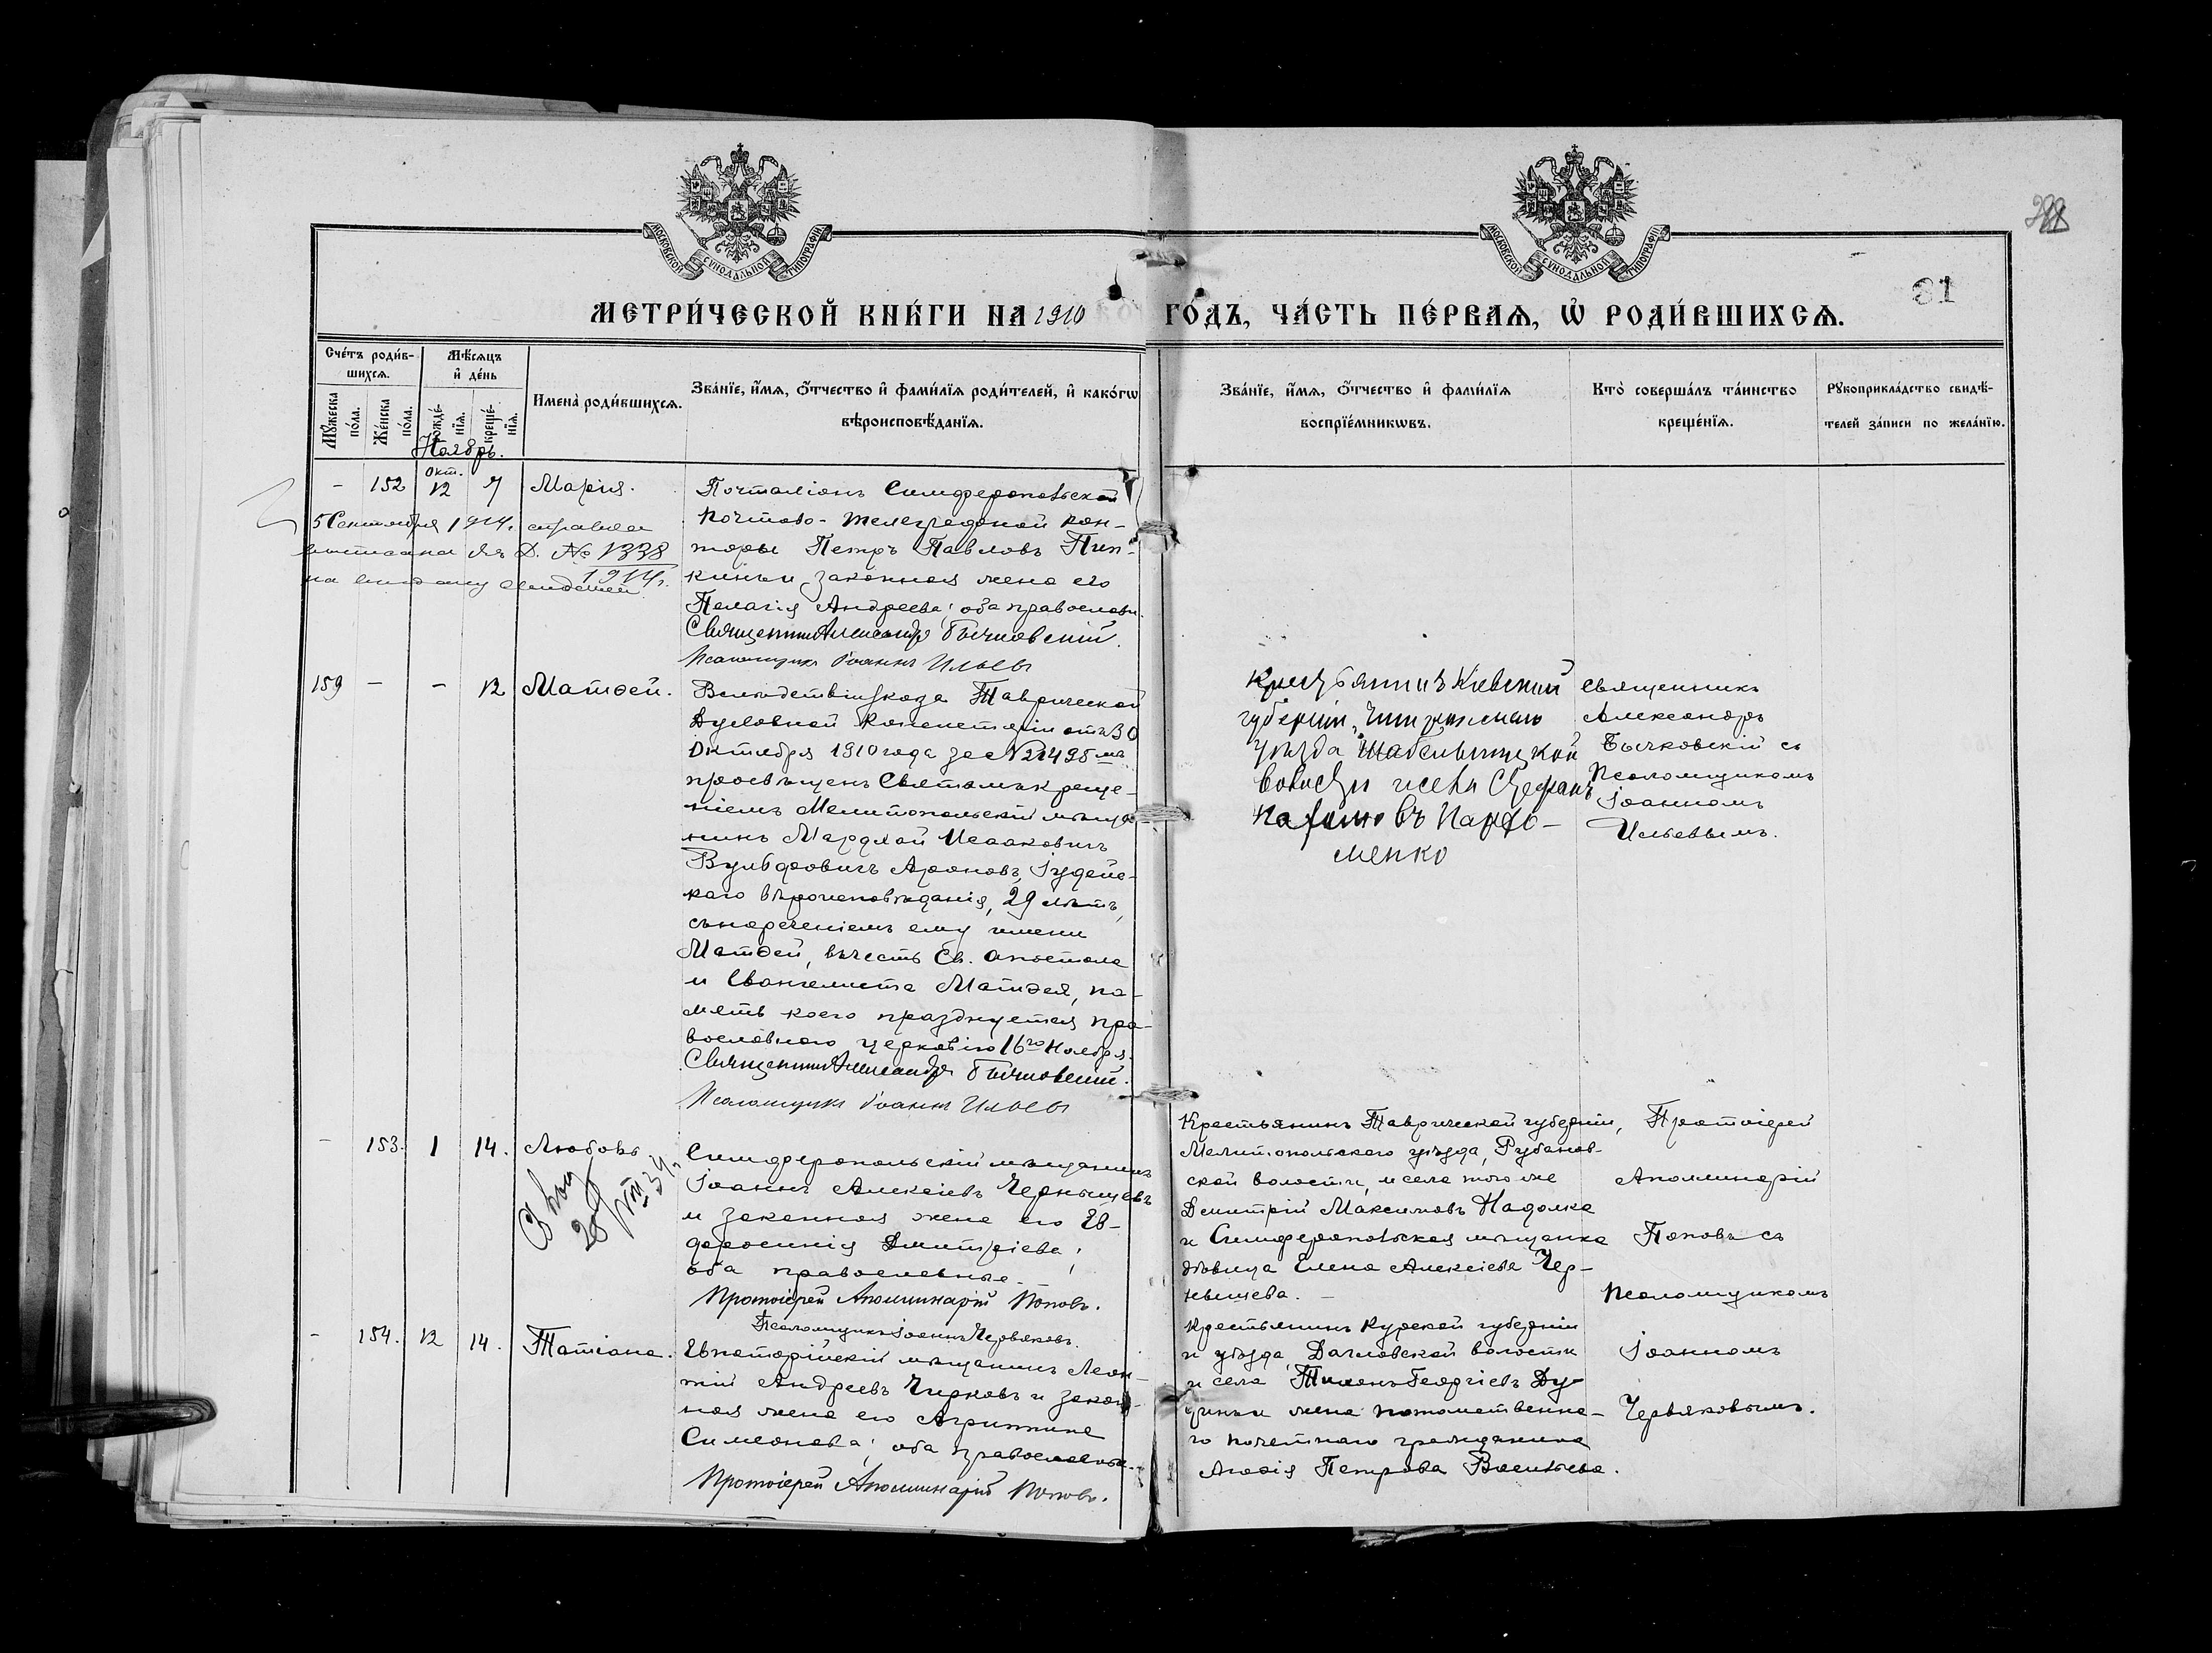 МОСКОВСКОЙ СѴНОДАЛЬНОЙ ТИПОГРАФІИ
МОСКОВСКОЙ СѴНОДАЛЬНОЙ ТИПОГРАФІИ
31
МЕТРИ́ЧЕСКОЙ КНИ́ГИ НА 1910 ГО́ДЪ, ЧА́СТЬ ПЕ́РВАѦ, Ѡ҆ РОДИ́ВШИХСѦ.
Сче́тъ роди́в-
шихсѧ.
Мꙋ́жеска по́ла.
Же́нска по́ла.
Мѣ́сѧцъ
и҆ де́нь
рожде́-
нїѧ.
креще́-
нїѧ.
Имена̀ роди́вшихсѧ.
Зва́нїе, и҆́мѧ, ѻ҆́тчество и҆ фами́лїѧ роди́телей, и҆ како́гѡ
вѣроисповѣ́данїѧ.
Зва́нїе, и҆́мѧ, ѻ҆́тчество и҆ фами́лїѧ
воспрїе́мникѡвъ.
Кто̀ соверша́лъ та́инство
креще́нїѧ.
Рꙋкоприкла́дство свидѣ́-
телей за́писи по жела́нїю.
Ноябрь.
- 152 Окт. 12 7 Марія.
5 Сентября 1914. справка
Д. № 1338
1914 г.
Почталіонъ Симферопольской
Почтово-Телеграфной кон-
торы Петръ Павловъ Пип-
кинъ и законная жена его
Пелагія Андреева; оба православн.
Священникъ Александръ Бычковскій.
Псаломщикъ Іоаннъ Ильевъ
159 - - 12 Матѳей.
Вслѣдствіи указа Таврической
Духовной Консисторіи отъ 30
Октября 1910 года за №21495 мъ
просвѣщенъ Святымъ креще-
ніемъ Мелитопольскій мѣща-
нинъ Мардхай Исааковичъ
Вульфовичъ Ароновъ, Іудейс-
каго вѣроисповѣданія, 29 лѣтъ,
съ нареченіемъ ему имени
Матѳей, въ честь Св. Апостола
и Евангелиста Матѳея, па-
мять коего празднуется пра-
вославною церковію 16го Ноября.
Священникъ Александръ Бычковскій.
Псаломщикъ Іоаннъ Ильевъ
Крестьянинъ Кіевской
губерніи, Чигиринскаго
уѣзда Шабельницкой
волости и села Стефанъ
Парфенко-
менко
Священникъ
Александръ
Бычковскій съ
Псаломщикомъ
Іоанномъ
Ильевымъ.
- 153. 1 14. Любовь
Симферопольскій мѣщанинъ
Іоаннъ Алексіевъ Чернышевъ
и законная жена его Ев-
фросинія Димитріева;
оба православные.
Протоіерей Аполлинарій Поповъ.
Псаломщикъ Іоаннъ Червяковъ.
Крестьянинъ Таврической губерніи,
Мелитопольскаго уѣзда, Рубанов-
ской волости, и села того же
Димитрій Максимовъ Надолка
и Симферопольская мѣщанка
дѣвица Елена Алексіева Чер-
нышева.
Протоіерей
Аполлинарій
Поповъ съ
Псаломщикомъ
Іоанномъ
Червяковымъ.
- 154. 12 14. Татіана.
Евпаторійскій мѣщанинъ Леон-
тій Андреевъ Чирковъ и закон-
ная жена его Агриппина
Симеонова; оба православные.
Протоіерей Аполлинарій Поповъ.
Крестьянинъ Курской губерніи
и уѣзда, волости
и села Тихонъ Георгіевъ Ду-
и жена потомственна-
го почетнаго гражданина
Петрова Васильева.